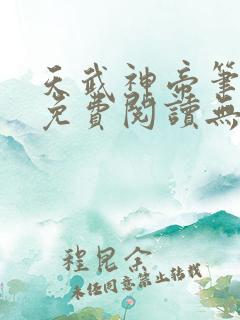 天武神帝筆
免費閱讀無
程昆余
未经同意禁止转载